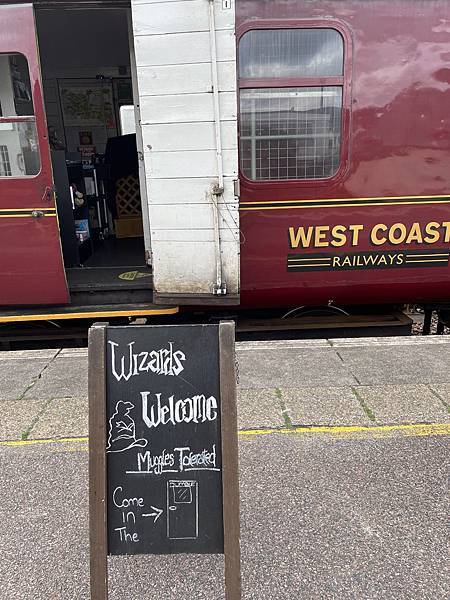 1
WEST COAST
RAILWAYS
Wizards
Welcome
Muggles Tolerated
Come
in
The